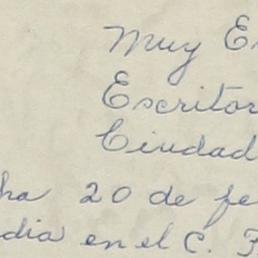 Muy E
Escritor
Ciudad
ha 20 de fe
dia en el C. F